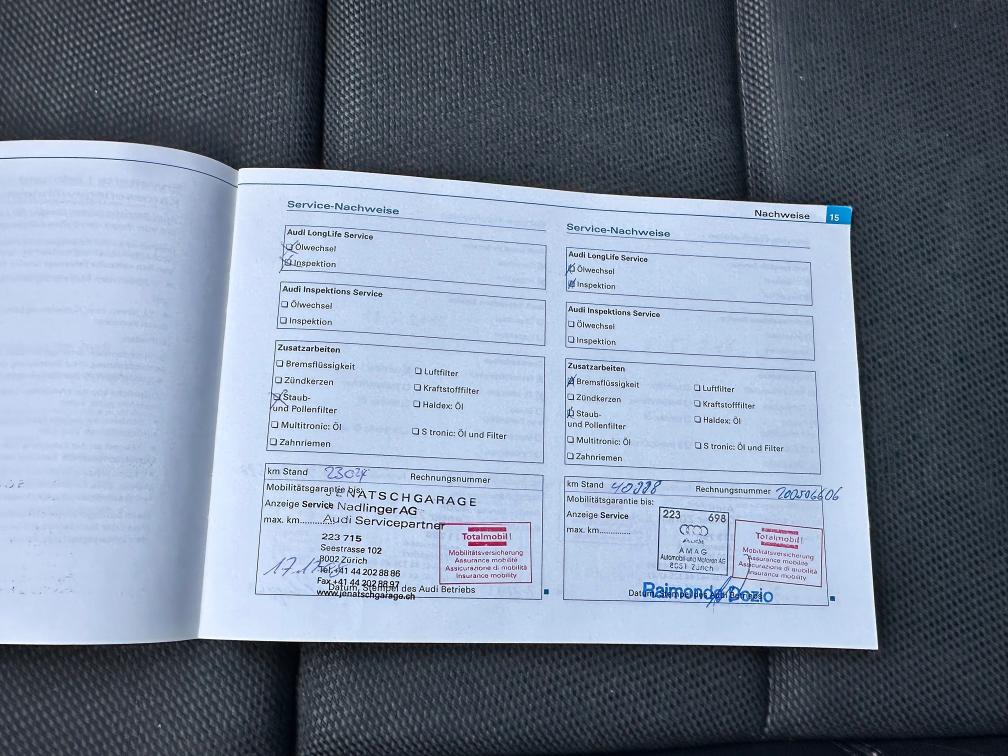 Nachweise 15
Service-Nachweise
Audi LongLife Service
Ölwechsel
Inspektion
Audi Inspektions Service
Ölwechsel
Inspektion
Zusatzarbeiten
Bremsflüssigkeit
Luftfilter
Zündkerzen
Kraftstofffilter
Staub-
und Pollenfilter
Haldex: Öl
Multitronic: Öl
S tronic: Öl und Filter
Zahnriemen
km Stand
Rechnungsnummer
Mobilitätsgarantie bis:
JENATSCHGARAGE
Anzeige Service
Nadlinger AG
max. km
Audi Servicepartner
223 715
Seestrasse 102
8002 Zürich
Tel. +41 44 202 88 86
Fax +41 44 202 88 97
www.jenatschgarage.ch
Datum, Stempel des Audi Betriebs
Totalmobil!
Mobilitätsversicherung
Assurance mobilité
Assicurazione di mobilità
Insurance mobility
Service-Nachweise
Audi LongLife Service
Ölwechsel
Inspektion
Audi Inspektions Service
Ölwechsel
Inspektion
Zusatzarbeiten
Bremsflüssigkeit
Luftfilter
Zündkerzen
Kraftstofffilter
Staub-
und Pollenfilter
Haldex: Öl
Multitronic: Öl
S tronic: Öl und Filter
Zahnriemen
km Stand
Rechnungsnummer
Mobilitätsgarantie bis:
Anzeige Service
max. km
223 698
Audi
AMAG
Automobil und Motoren AG
8051 Zürich
Totalmobil!
Mobilitätsversicherung
Assurance mobilité
Assicurazione di mobilità
Insurance mobility
Raimondo Dozio